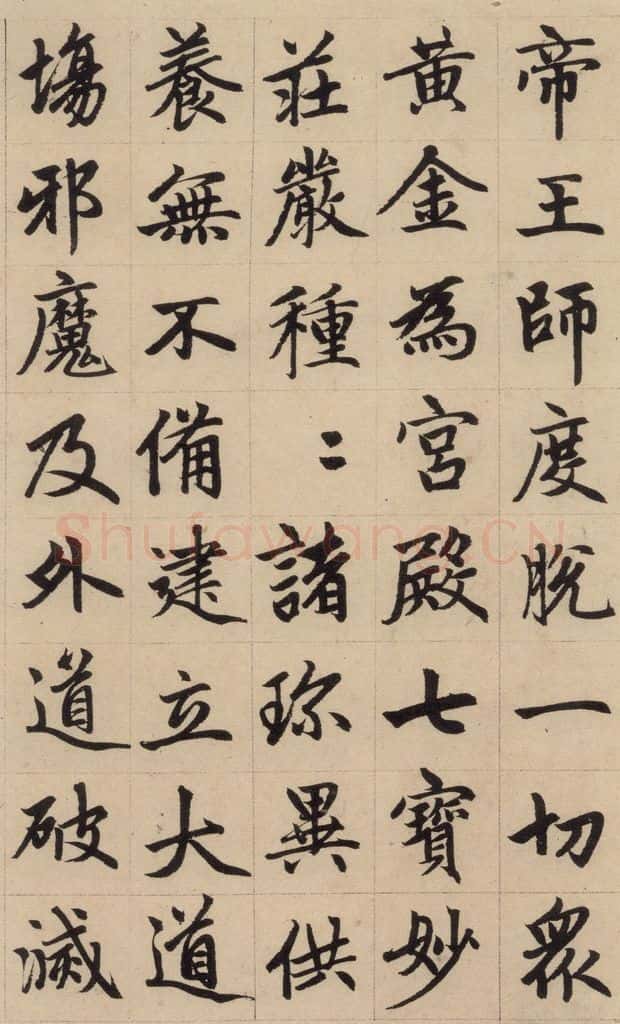 帝王師度脫一切眾
黃金為宮殿七寶妙
莊嚴種〻諸珎異供
養無不備建立大道
場邪魔及外道破滅
Shufawang.CN